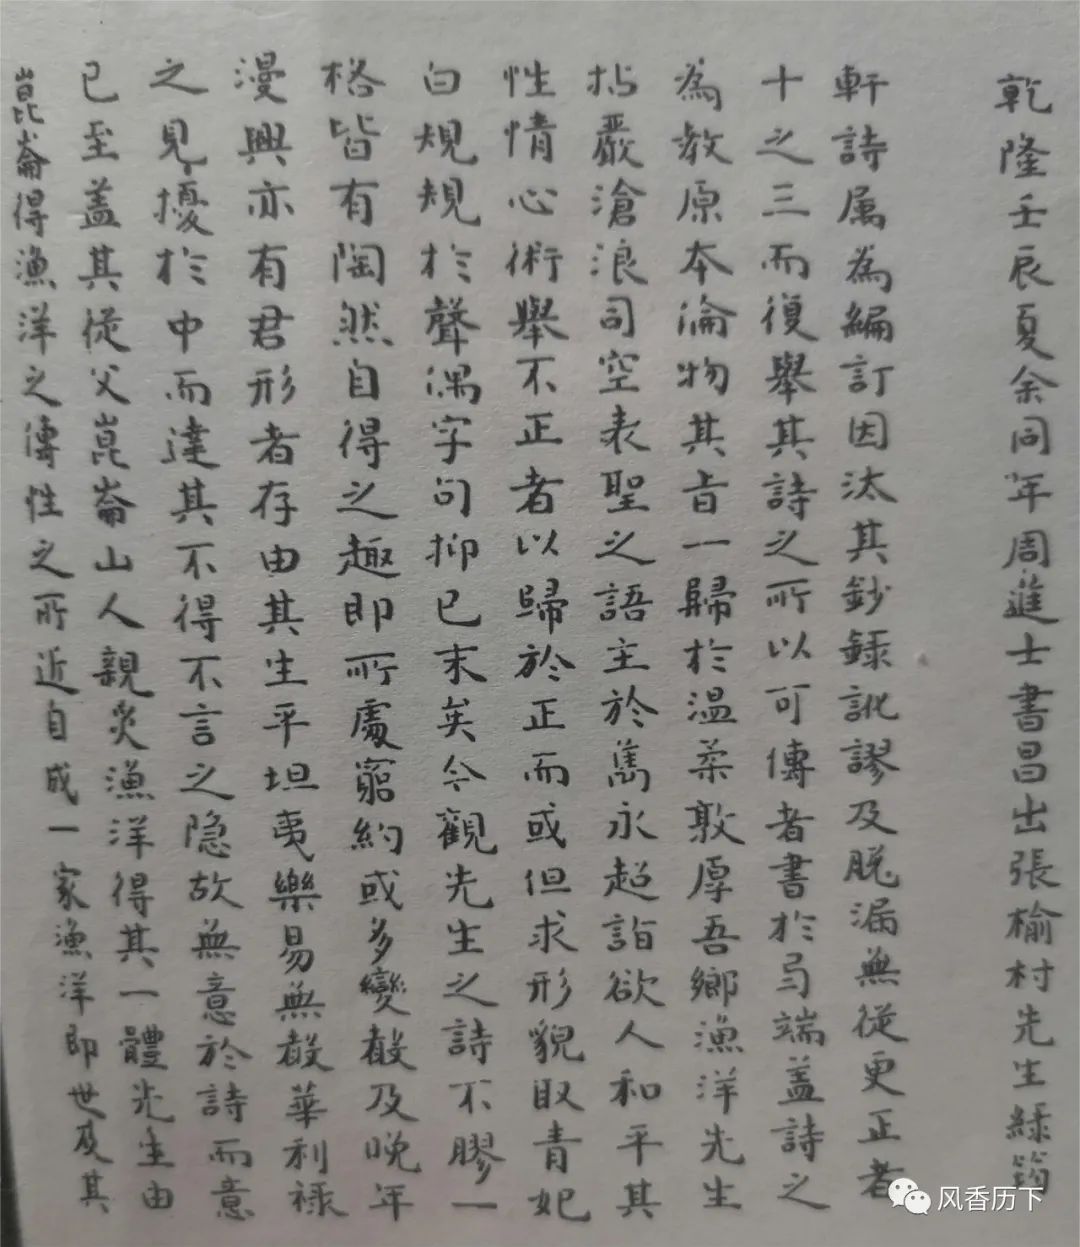 乾隆壬辰夏余同年周進士書昌出張榆村先生綠筠
軒詩属為編訂因汰其鈔錄訛謬及脱漏無從更正者
十之三而復舉其詩之所以可傳者書於弓端盖詩之
為教原本淪物其旨一歸於温柔敦厚吾鄉漁洋先生
拈嚴滄浪司空表聖之語主於雋永超詣欲人和平其
性情心術舉不正者以歸於正而或但求形貌取青妃
白規規於聲偶字句抑已末矣今觀先生之詩不膠一
格皆有陶然自得之趣即所處窮約或多變殽及晚年
漫興亦有君形者存由其生平坦夷樂易無殽華利禄
之見擾於中而達其不得不言之隐故無意於詩而意
已至盖其從父崑崙山人親炙漁洋得其一體先生由
崑崙得漁洋之傳性之所近自成一家漁洋即世及其
风香历下